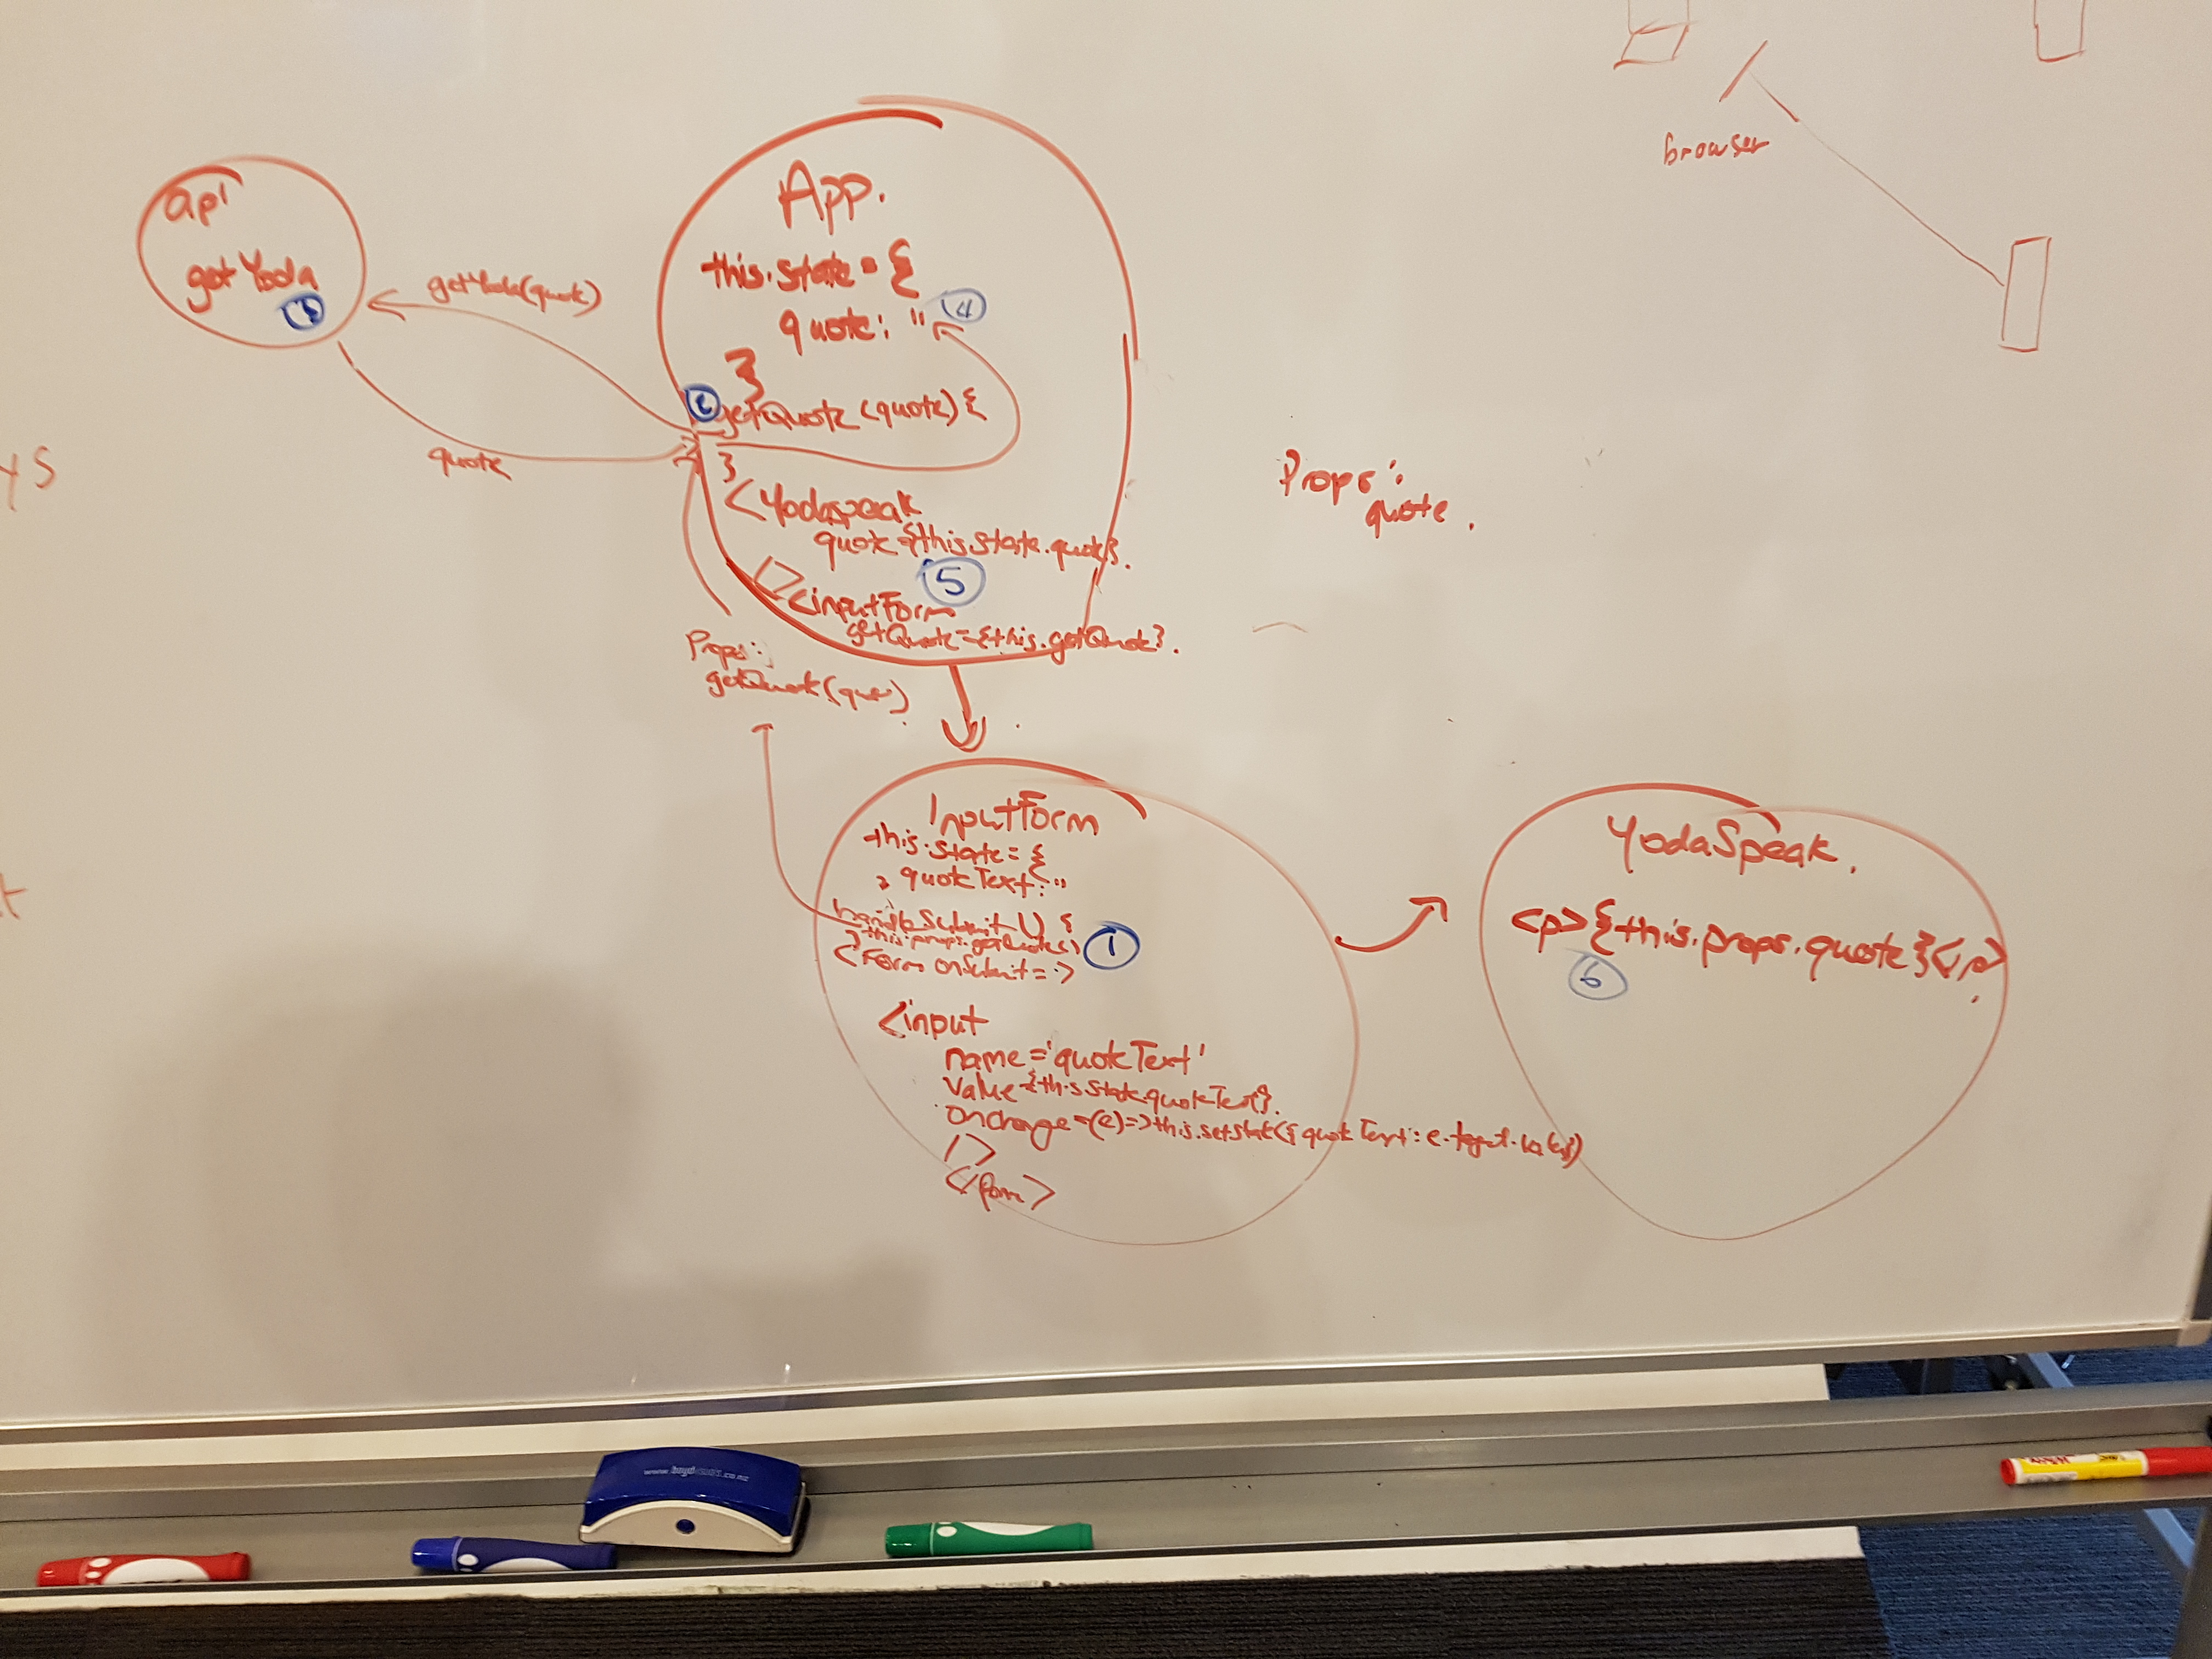 browser
api
getYoda
getYoda(quote)
quote
App.
this.state = {
quote: ''
④
}
②
getQuote (quote) {
}
<Yodaspeak
quote={this.state.quote}.
/>
⑤
<inputForm
getQuote={this.getQuote}.
Props:
quote.
Props:
getQuote(quote)
InputForm
this.state = {
quoteText: ''
}
handleSubmit () {
} this.props.getQuote()
①
<Form onSubmit = >
<input
name='quoteText'
value={this.state.quoteText}.
onchange=(e)=>this.setState({quoteText: e.target.value})
/>
</form>
YodaSpeak.
<p>{this.props.quote}</p>
⑥
ys